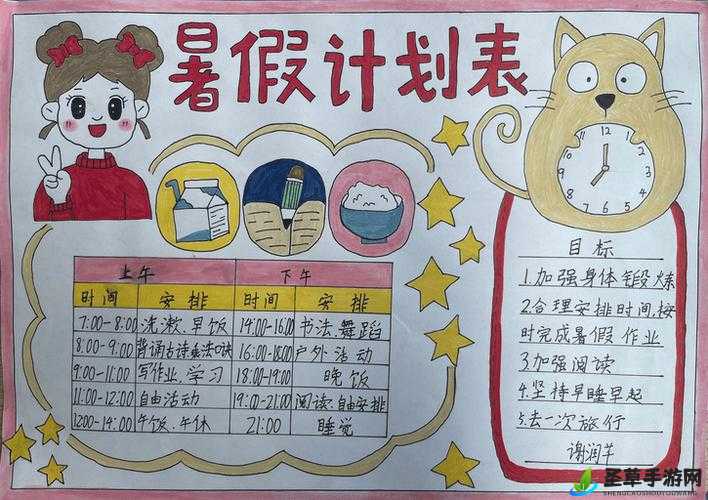 暑假计划表
12
7
上午 下午
时间 安排 时间 安排
7:00-8:00 洗漱.早饭 14:00-16:00 书法.舞蹈
8:00-9:00 背诵古诗乘法口诀 16:00-18:00 户外活动
9:00-11:00 写作业.学习 18:00-19:00 晚饭
11:00-12:00 自由活动 19:00-21:00 阅读.自由安排
12:00-14:00 午饭.午休 21:00 睡觉
目标
1.加强身体锻炼
2.合理安排时间,按
时完成暑假作业
3.加强阅读
4.坚持早睡早起
5.去一次旅行
谢润芊
圣草手游网
SHENGCAOSHOUYOUWANG